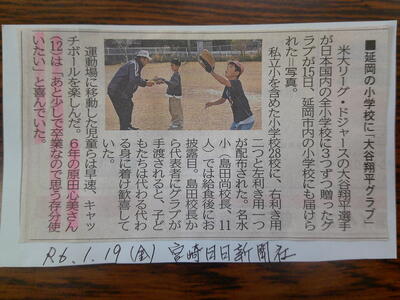 ■延岡の小学校に「大谷翔平グラブ」
米大リーグ・ドジャースの大谷翔平選手
が日本国内の全小学校に3つずつ贈ったグ
ラブが15日、延岡市内の小学校にも届けら
れた＝写真。
私立小を含めた小学校28校に、右利き用
二つと左利き用一つ
が配布された。名水
小（島田尚校長、11
人）では給食後にお
披露目。島田校長か
ら代表者にグラブが
手渡されると、子ど
もたちは代わる代わ
る身に着け歓喜して
いた。
運動場に移動した児童らは早速、キャッ
チボールを楽しんだ。6年の原田心美さん
(12)は「あと少しで卒業なので思う存分使
いたい」と喜んでいた。
R6.1.19(金) 宮崎日日新聞社